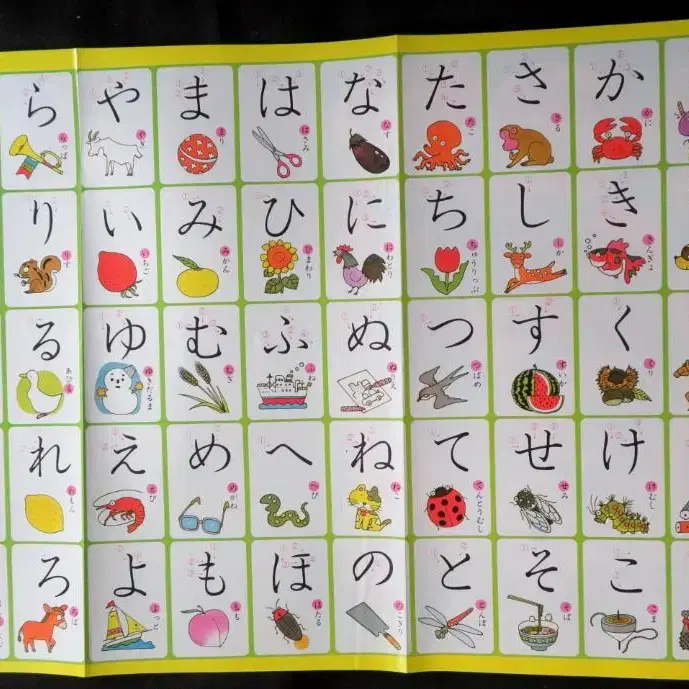 か
かに
き
きんぎょ
く
くり
け
けむし
こ
こま
さ
さる
し
しか
す
すいか
せ
せみ
そ
そば
た
たこ
ち
ちゅうりっぷ
つ
つばめ
て
てんとうむし
と
とんぼ
な
なす
に
にわとり
ぬ
ぬりえ
ね
ねこ
の
のこぎり
は
はさみ
ひ
ひまわり
ふ
ふね
へ
へび
ほ
ほたる
ま
まり
み
みかん
む
むぎ
め
めがね
も
もも
や
やぎ
い
いちご
ゆ
ゆきだるま
え
えび
よ
よっと
ら
らっぱ
り
りす
る
あひる
れ
れもん
ろ
ろば